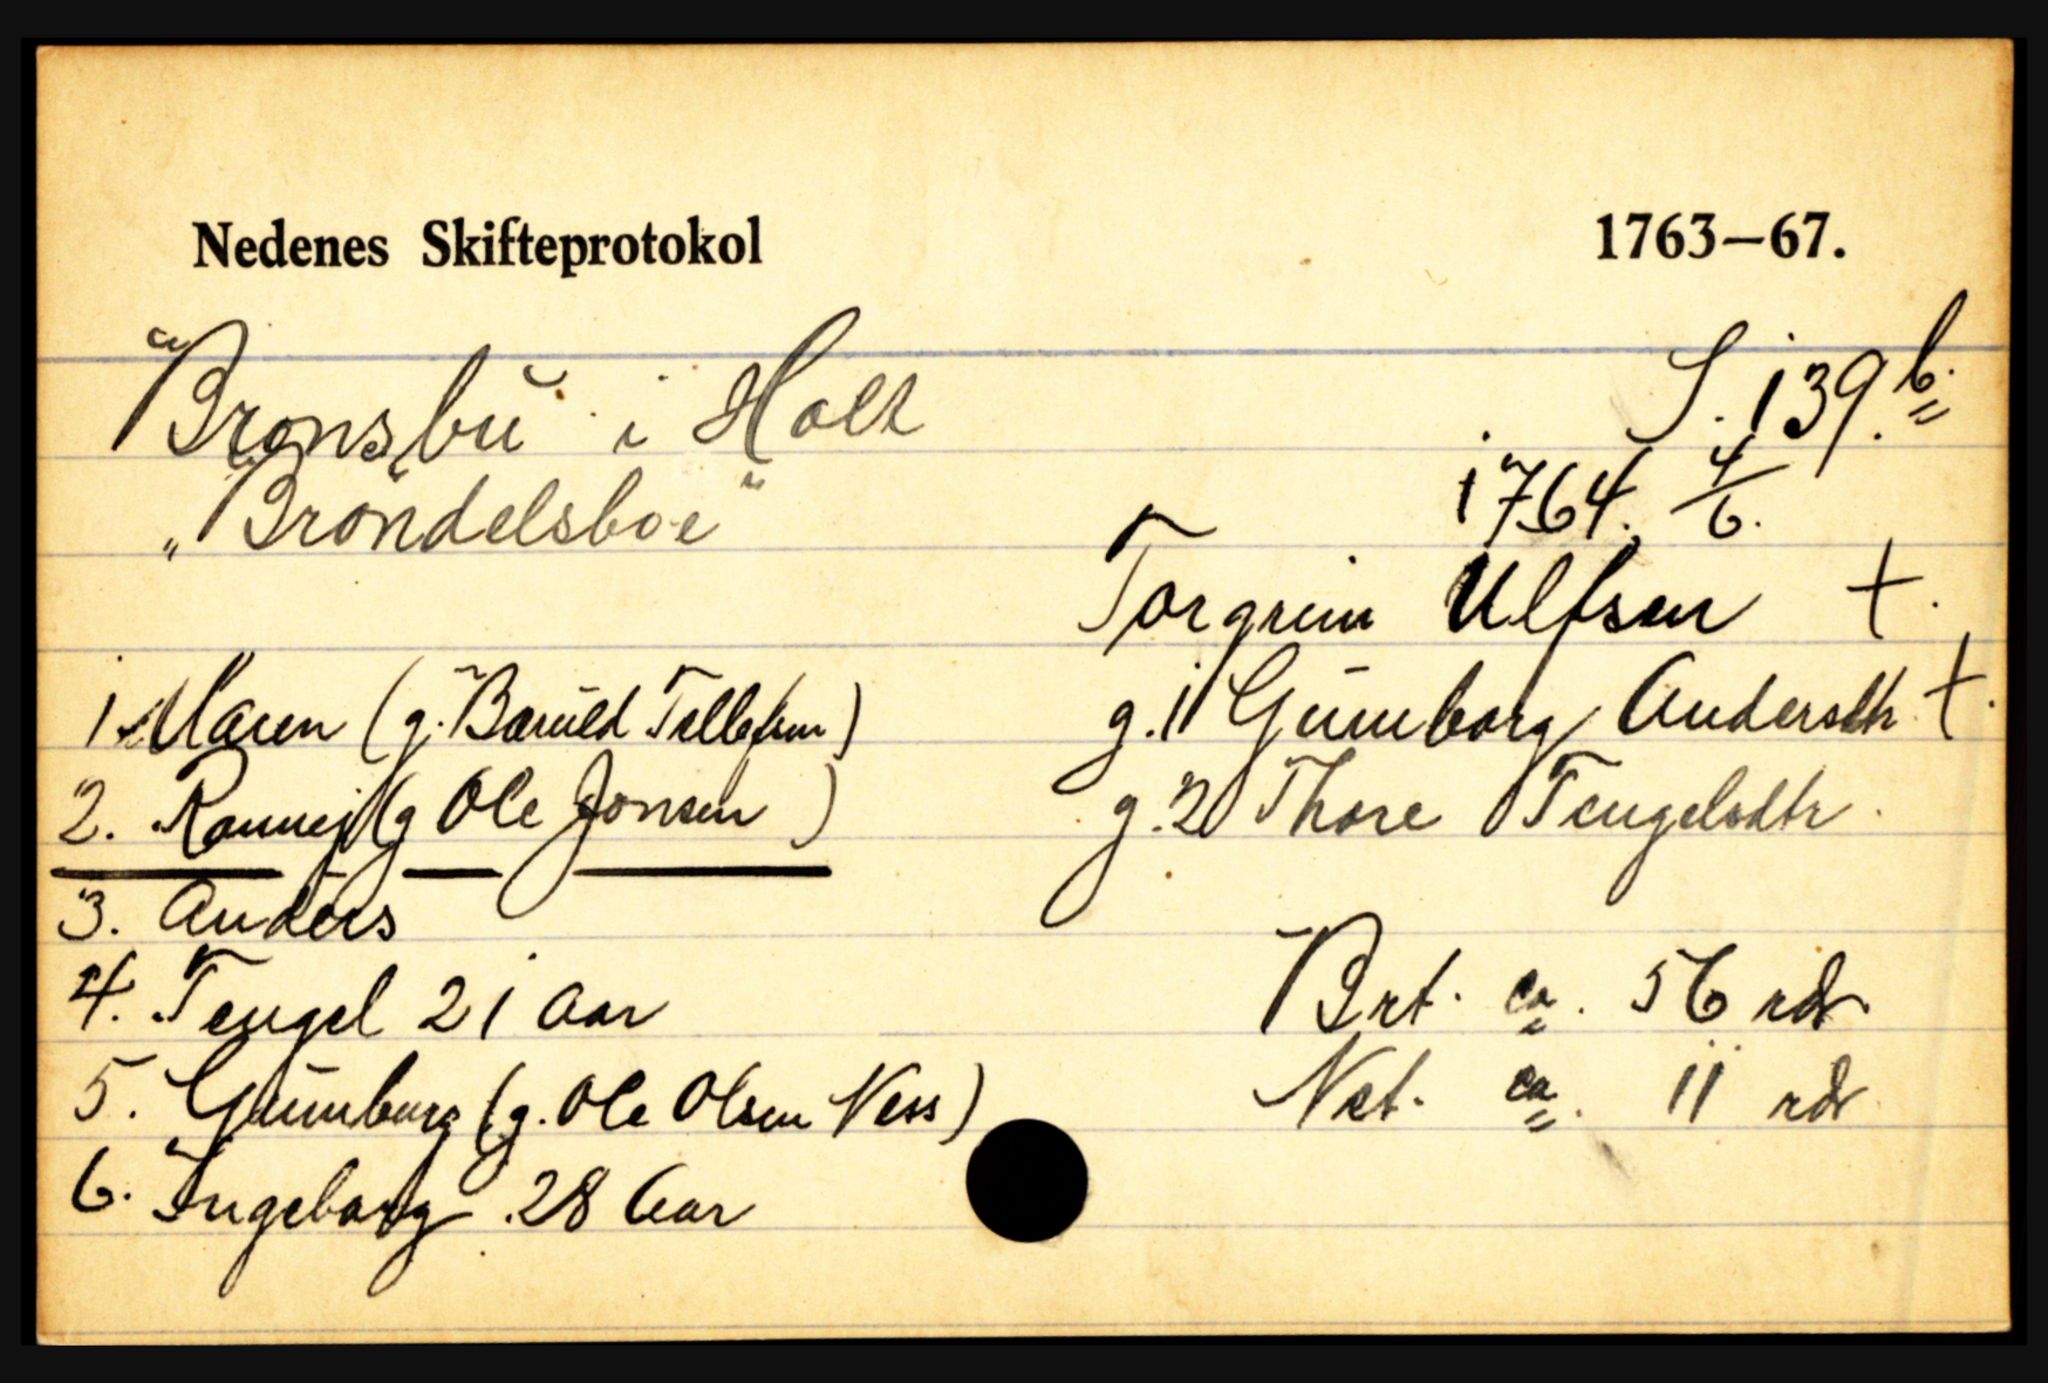 Nedenes Skifteprotokol 1763–67.
Bronsbu i Holt S. 139.b.
1764. 4/6.
„Brøndelsboe"
Torgrim Ulfsen †.
1 Maren (g. Baruld Tellefsen) g.1 Gunnborg Andersdtr †.
2. Rannej (g Ole Jonsen) g.2 Thore Tengelsdtr.
3. Anders
4. Tengel 21 aar Brt. ca. 56 rdr
5. Gunnborg (g. Ole Olsen Ness) Net. ca. 11 rdr
6. Ingeborg 28 Aar